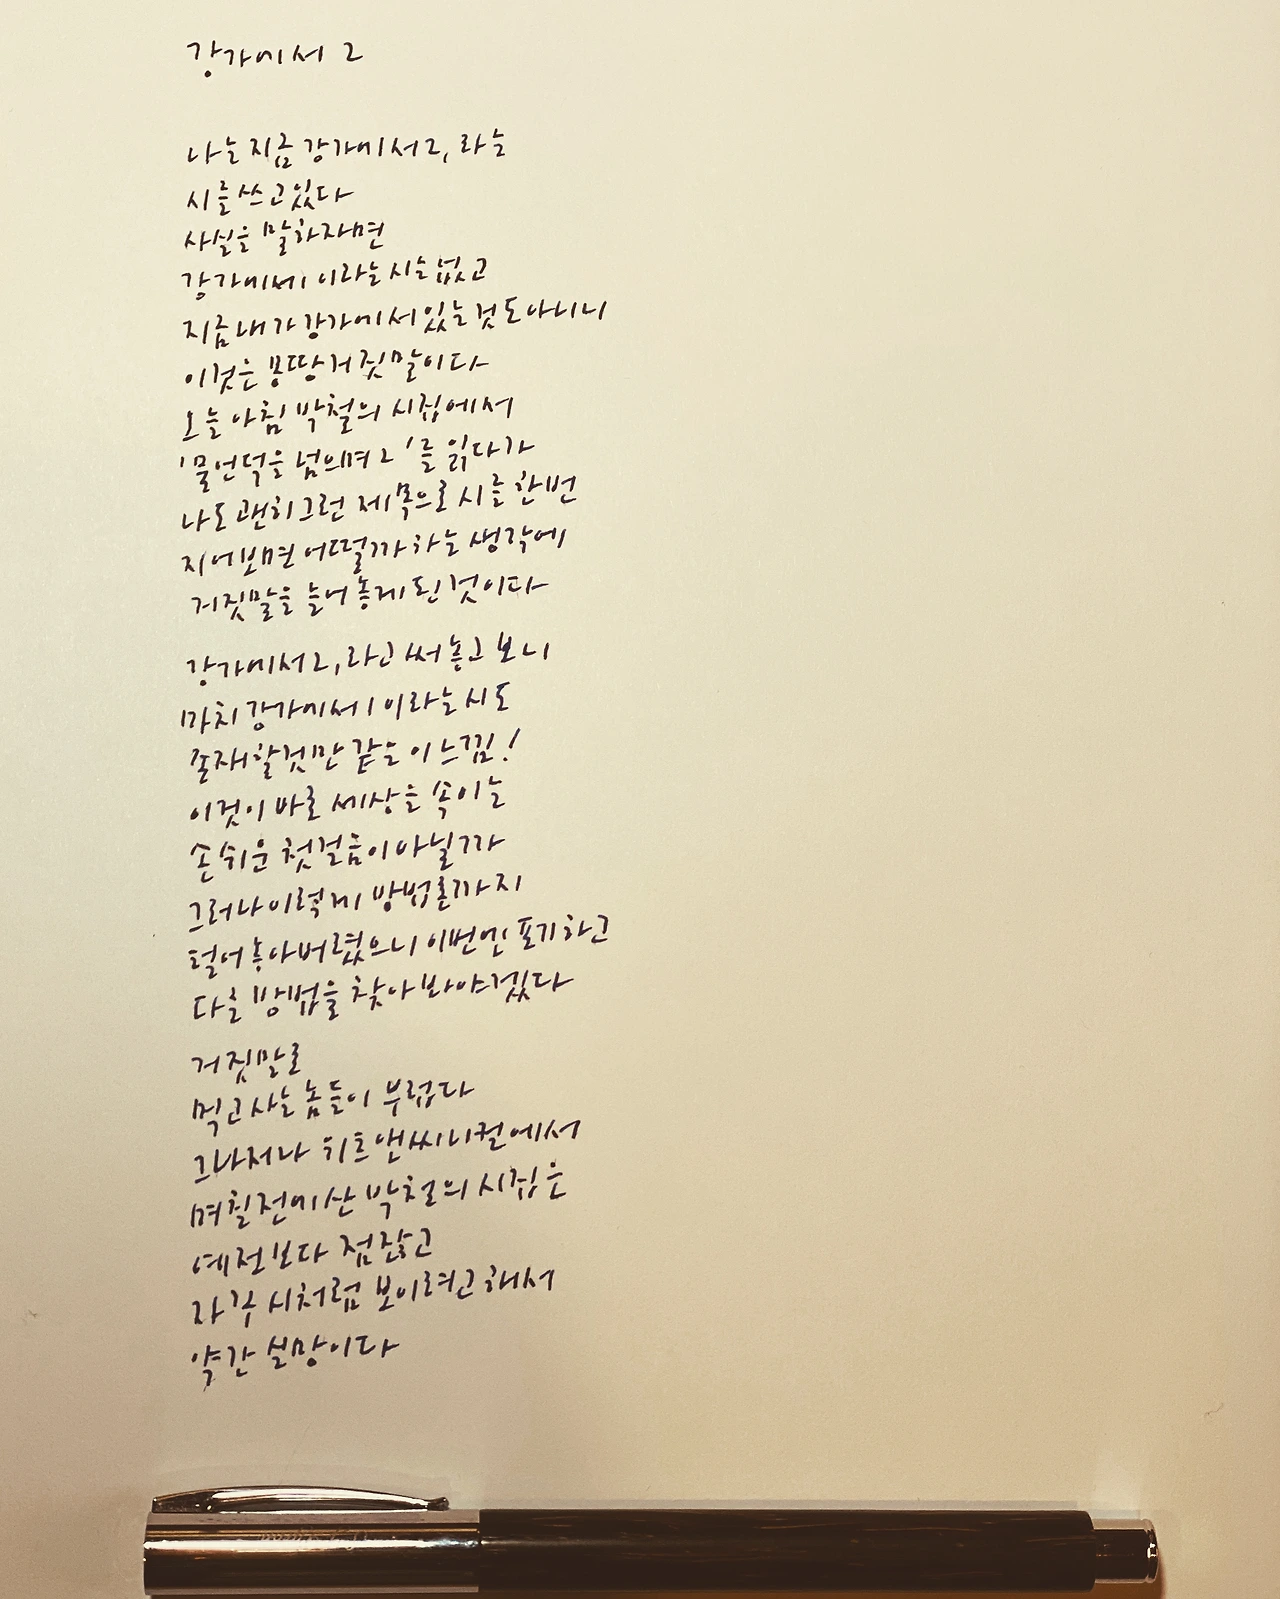 강가에서 2
나는 지금 강가에서 2, 라는
시를 쓰고 있다
사실을 말하자면
강가에서 1 이라는 시는 없고
지금 내가 강가에서 있는 것도 아니니
이것은 몽땅 거짓말이다
오늘 아침 박철의 시집에서
'물언덕을 넘으며 2'를 읽다가
나도 괜히 그런 제목으로 시를 한번
지어보면 어떨까 하는 생각에
거짓말을 늘어놓게 된 것이다
강가에서 2, 라고 써 놓고 보니
마치 강가에서 1 이라는 시도
존재할것만 같은 이 느낌!
이것이 바로 세상을 속이는
손쉬운 첫걸음이 아닐까
그러나 이렇게 방법론까지
털어놓아버렸으니 이번엔 포기하고
다른 방법을 찾아봐야겠다
거짓말로
먹고 사는 놈들이 부럽다
그나저나 위트앤씨니컬에서
며칠전에 산 박철의 시집은
예전보다 점잖고
자꾸 시처럼 보이려고 해서
약간 실망이다